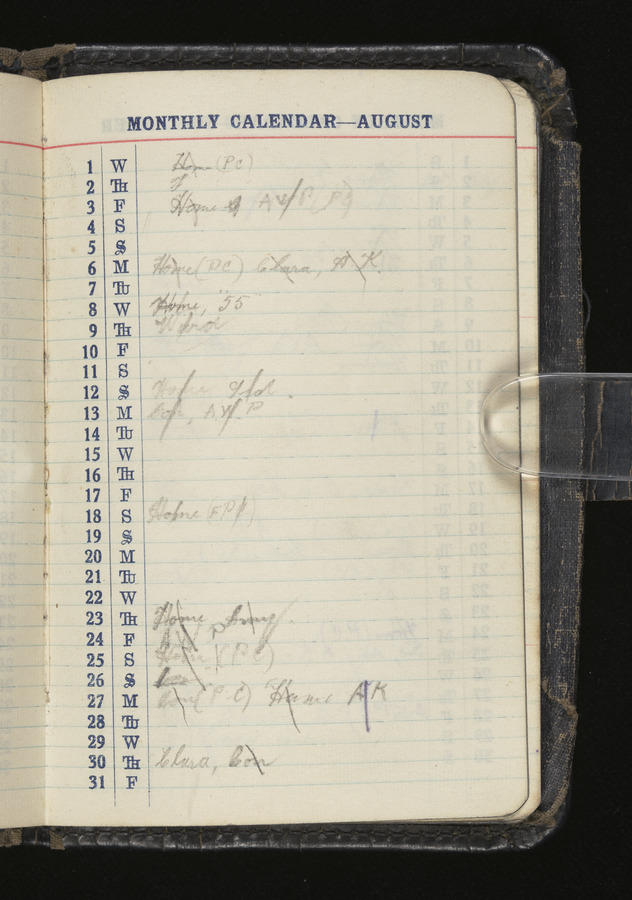 MONTHLY CALENDAR—AUGUST
1 W Home (PC)
2 TH
3 F Home (PC)
4 S
5 S
6 M Home (PC) Clara, A K.
7 TU
8 W Home, "55"
9 TH
10 F
11 S
12 S Home
13 M Con, A
14 TU
15 W
16 TH
17 F
18 S Home
19 S
20 M
21 TU
22 W
23 TH Home
24 F
25 S Home (PC)
26 S
27 M (P.C) Home AK
28 TU
29 W
30 TH Clara, Con
31 F